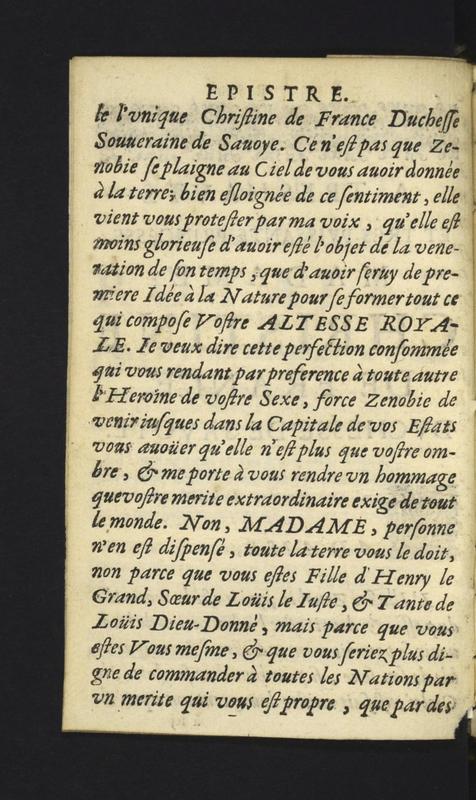 EPISTRE.
le l'vnique Chriſtine de France Ducheſſe
Souueraine de Sauoye. Ce n'eſt pas que Ze-
nobie ſe plaigne au Ciel de vous auoir donnée
à la terre; bien eſloignée de ce ſentiment, elle
vient vous proteſter par ma voix, qu'elle eſt
moins glorieuſe d'auoir eſté l'objet de la vene-
ration de ſon temps, que d'auoir ſeruy de pre-
miere Idée à la Nature pour ſe former tout ce
qui compoſe Voſtre ALTESSE ROYA-
LE. Ie veux dire cette perfection conſommée
qui vous rendant par preference à toute autre
l'Heroïne de voſtre Sexe, force Zenobie de
venir iuſques dans la Capitale de vos Eſtats
vous auoüer qu'elle n'eſt plus que voſtre om-
bre, & me porte à vous rendre vn hommage
que voſtre merite extraordinaire exige de tout
le monde. Non, MADAME, perſonne
n'en eſt diſpenſé, toute la terre vous le doit,
non parce que vous eſtes Fille d'Henry le
Grand, Sœur de Loüis le Iuſte, & Tante de
Loüis Dieu-Donné, mais parce que vous
eſtes Vous meſme, & que vous ſeriez plus di-
gne de commander à toutes les Nations par
vn merite qui vous eſt propre, que par des